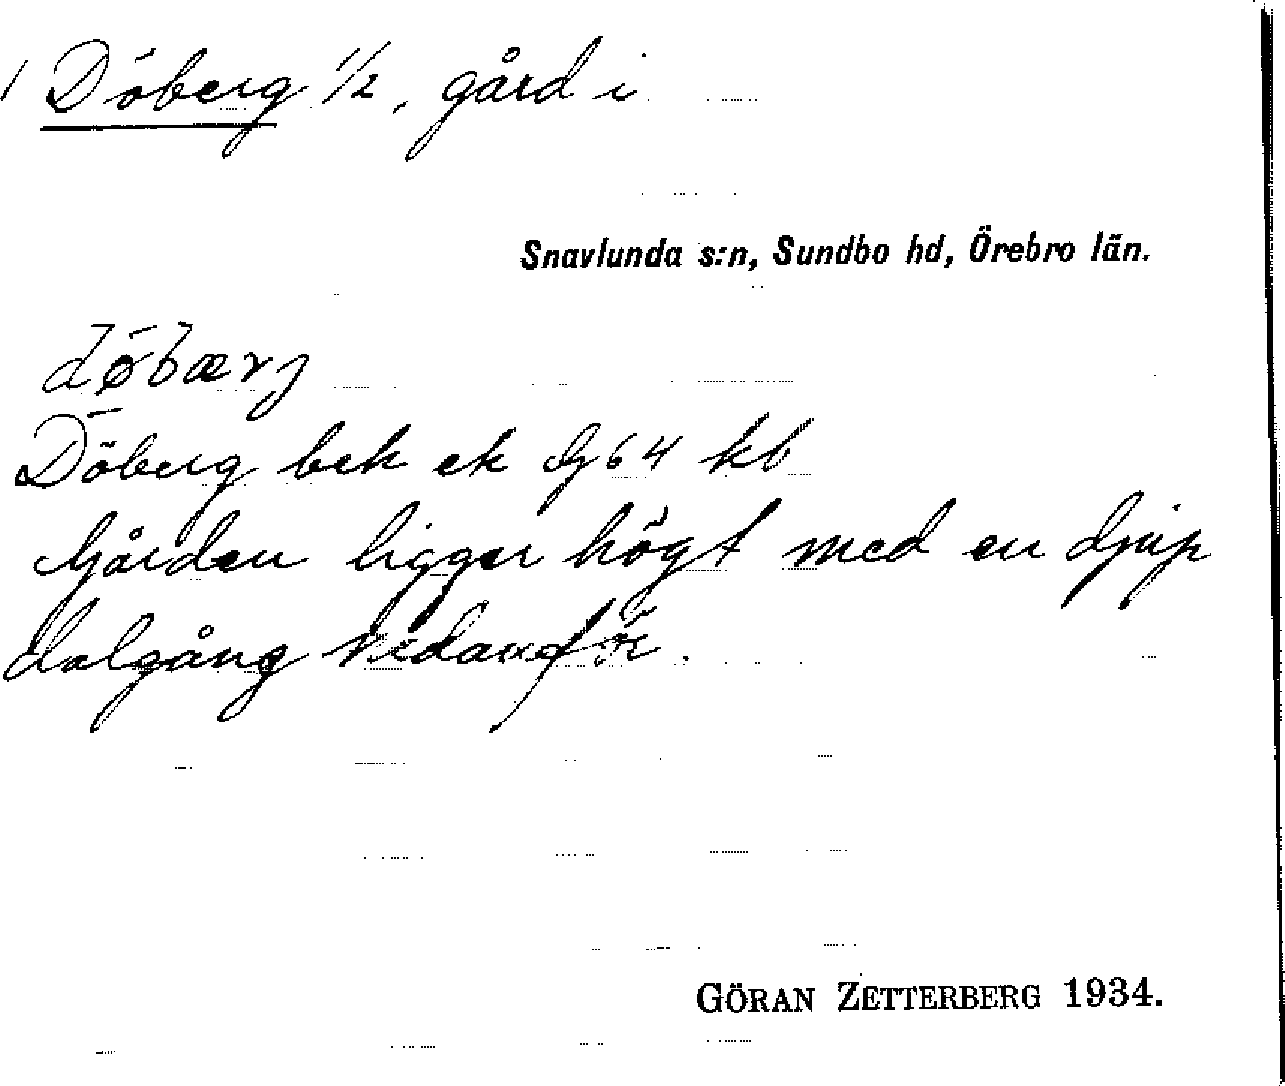 Döberg 1/2, gård i
Snavlunda s:n, Sundbo hd, Örebro län.
dø̄bærj
Döberg bek ek Gj 64 kb
Gården ligger högt med en djup
dalgång nedanför.
GÖRAN ZETTERBERG 1934.